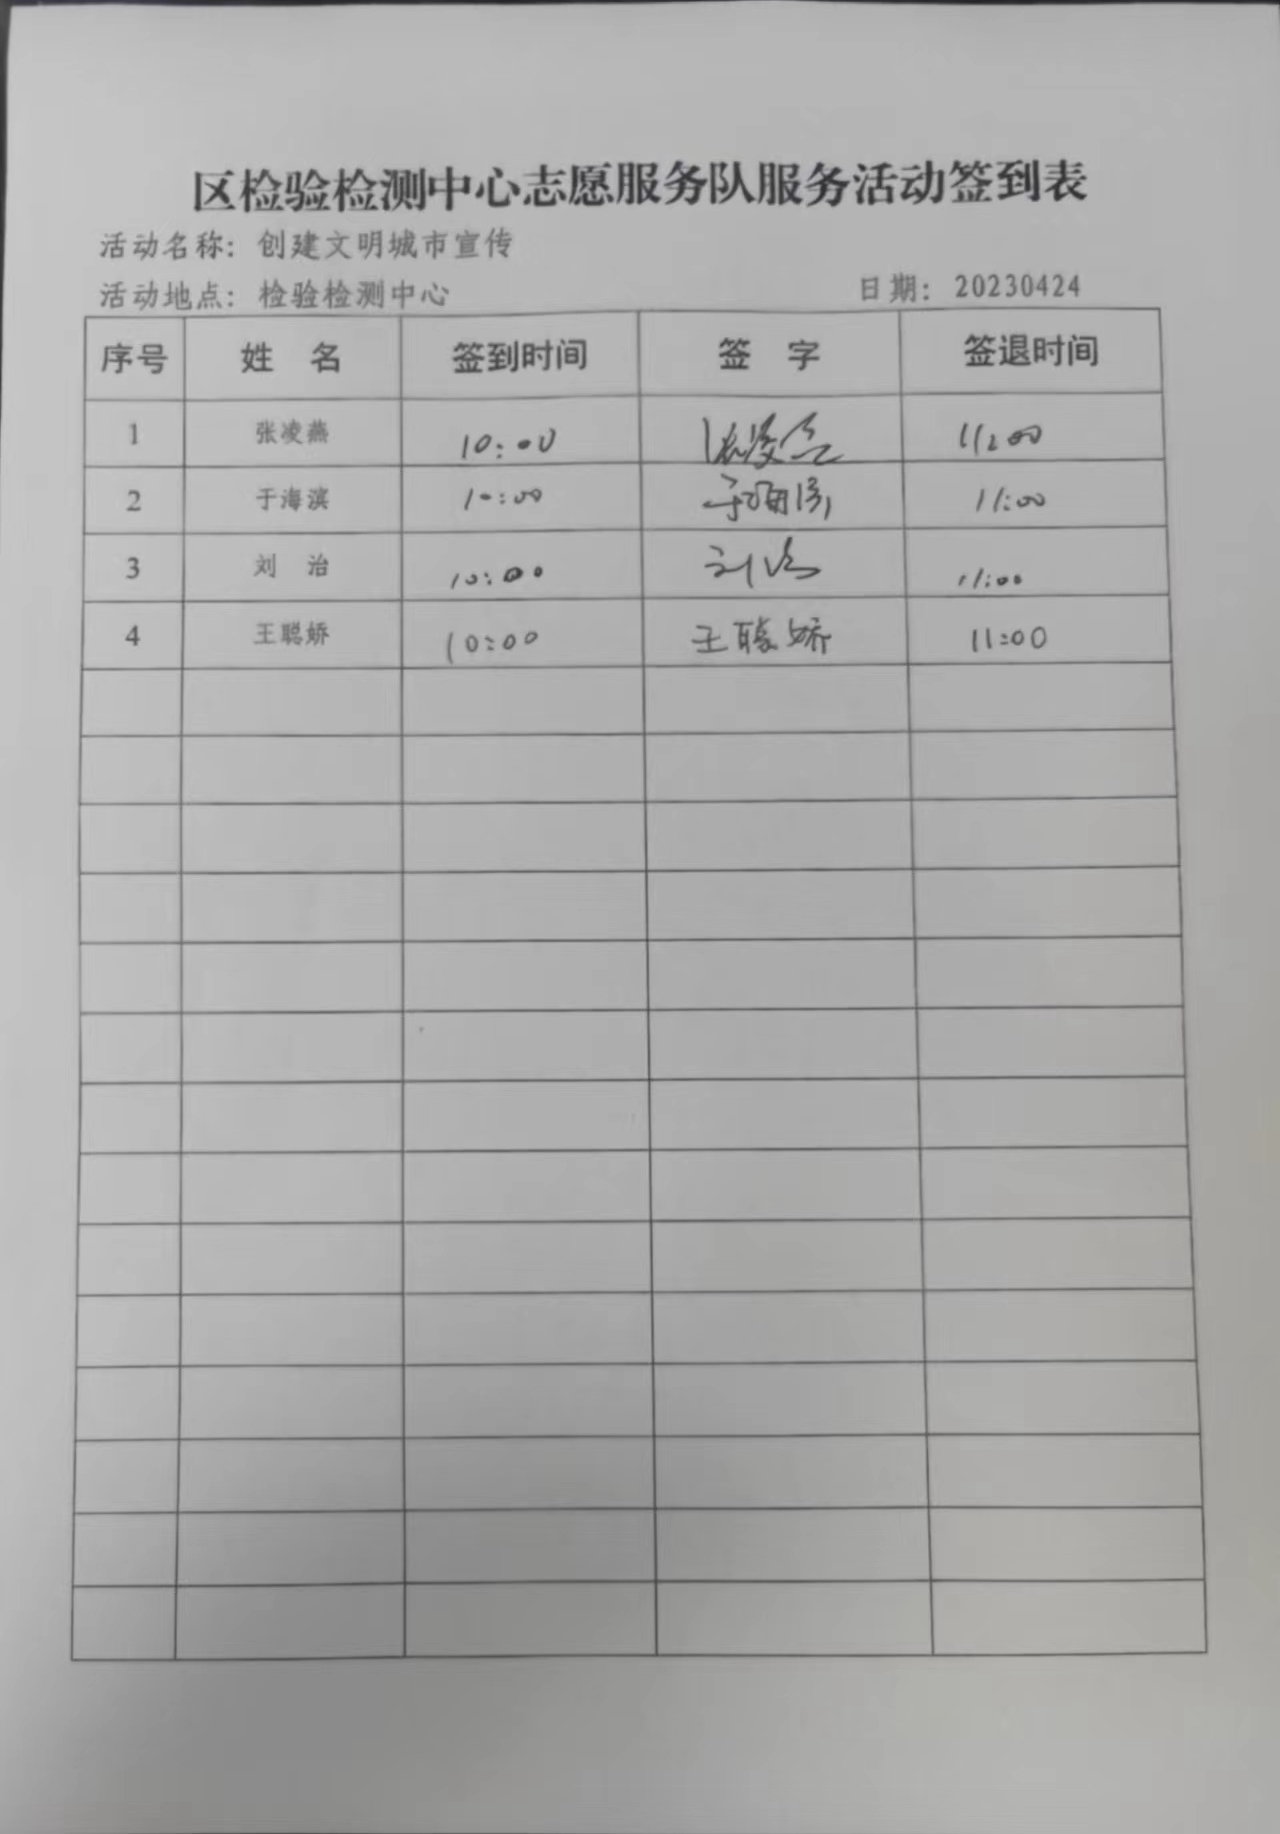 区检验检测中心志愿服务队服务活动签到表
活动名称：创建文明城市宣传
活动地点：检验检测中心 日期：20230424
序号 姓 名 签到时间 签 字 签退时间
1 张凌燕 10:00 张凌燕 11:00
2 于海滨 10:00 于海滨 11:00
3 刘 治 10:00 刘治 11:00
4 王聪娇 10:00 王聪娇 11:00